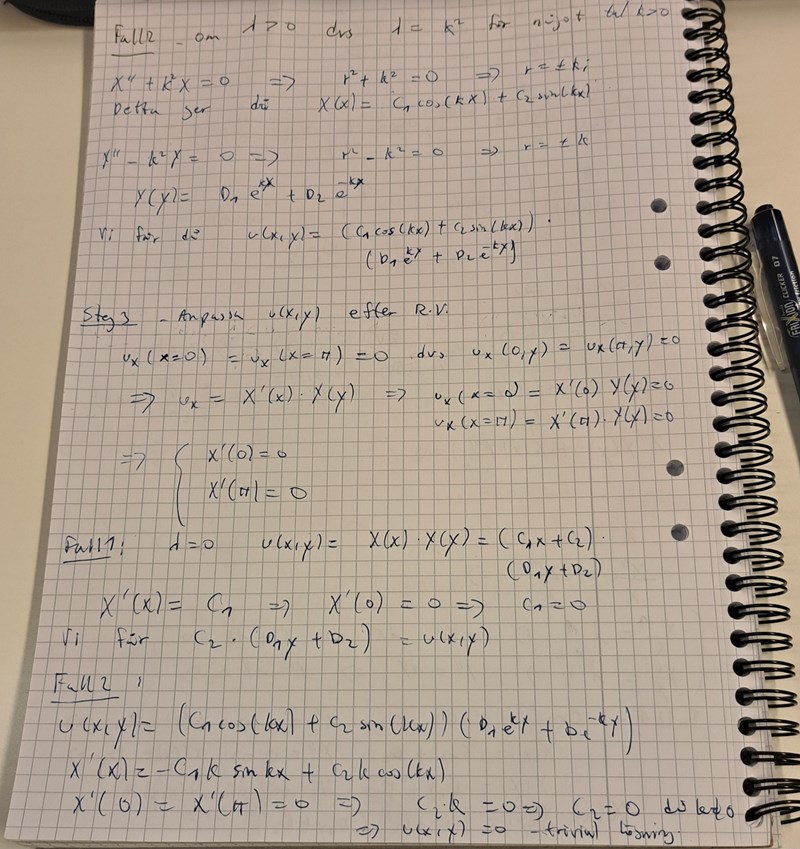 Fall 2 - om λ > 0 dvs λ = k² för något tal k>0
X'' + k²X = 0 => r² + k² = 0 => r = ± ki
Detta ger då X(x) = C₁ cos(kx) + C₂ sin(kx)
Y'' - k²Y = 0 => r² - k² = 0 => r = ± k
Y(y) = D₁ e^{ky} + D₂ e^{-ky}
Vi får då u(x,y) = (C₁ cos(kx) + C₂ sin(kx)) ·
(D₁ e^{ky} + D₂ e^{-ky})
Steg 3 - Anpassa u(x,y) efter R.V.
uₓ(x=0) = uₓ(x=π) = 0 dvs uₓ(0,y) = uₓ(π,y) = 0
=> uₓ = X'(x) · Y(y) => uₓ(x=0) = X'(0) Y(y) = 0
uₓ(x=π) = X'(π) · Y(y) = 0
=> { X'(0) = 0
X'(π) = 0
Fall 1: λ=0 u(x,y) = X(x) · Y(y) = (C₁x + C₂) ·
(D₁y + D₂)
X'(x) = C₁ => X'(0) = 0 => C₁ = 0
Vi får C₂ · (D₁y + D₂) = u(x,y)
Fall 2 :
u(x,y) = (C₁ cos(kx) + C₂ sin(kx)) (D₁ e^{ky} + D e^{-ky})
X'(x) = -C₁k sin kx + C₂k cos(kx)
X'(0) = X'(π) = 0 => C₂·k = 0 => C₂ = 0 då k≠0
=> u(x,y) = 0 - trivial lösning.
FRIXION CLICKER 07